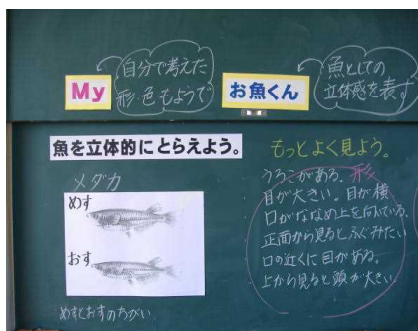 My
自分で考えた
形・色もようで
お魚くん
魚としての
立体感を表す
魚を立体的にとらえよう。
メダカ
めす
おす
めすとおすのちがい
もっとよく見よう。
うろこがある。形
目が大きい。目が横
口がななめ上を向いている
正面から見ると ふぐみたい
口の近くに目がある。
上から見ると頭が大きい。